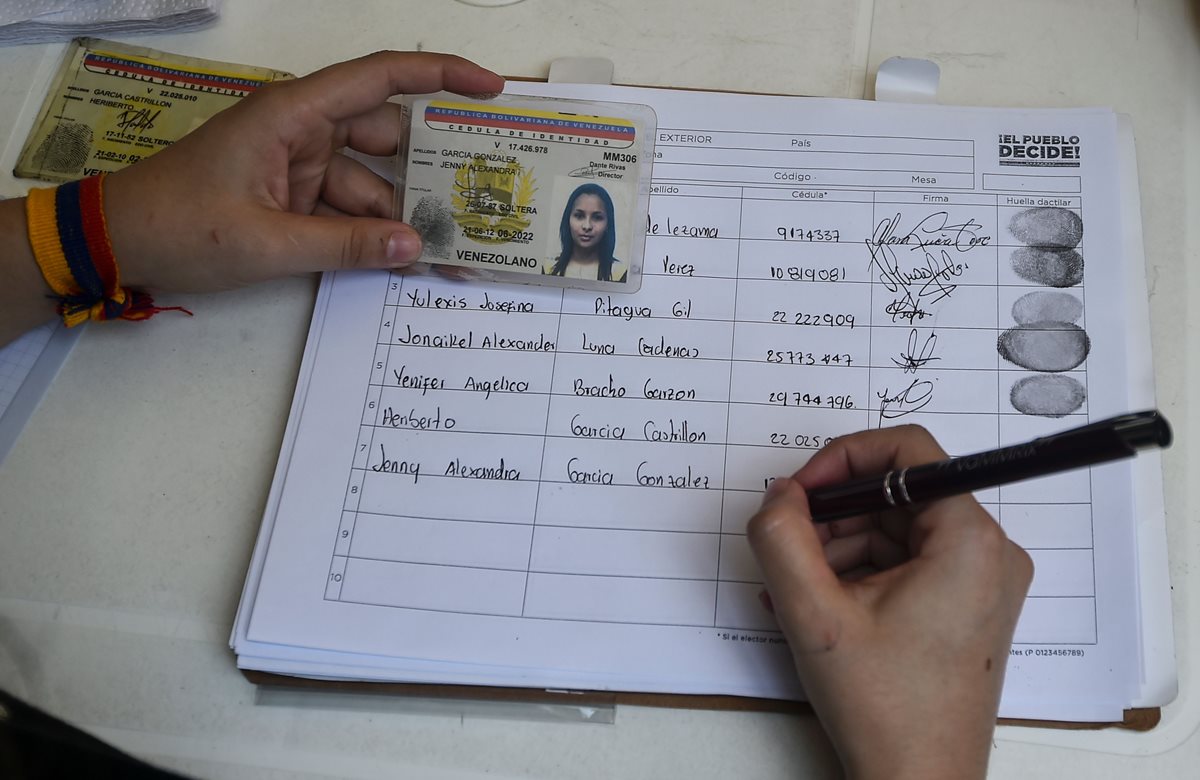 REPUBLICA BOLIVARIANA DE VENEZUELA
CEDULA DE IDENTIDAD
V 22.025.010
APELLIDOS GARCIA CASTRILLON
NOMBRES HERIBERTO
17-11-52 SOLTERO
21-02-10
REPUBLICA BOLIVARIANA DE VENEZUELA
CEDULA DE IDENTIDAD
V 17.426.978
APELLIDOS GARCIA GONZALEZ
NOMBRES JENNY ALEXANDRA
MM306
Dante Rivas
Director
SOLTERA
21-06-12 06-2022
VENEZOLANO
EXTERIOR País
¡EL PUEBLO
DECIDE!
Código Mesa
Cédula* Firma Huella dactilar
de lezama 9174337
Yerez 10819081
3 Yulexis Josefina Pitagua Gil 22 222909
4 Jonaikel Alexander Luna Cadenas 25773
5 Yenifer Angelica Bracho Garzon 29 744 796
6 Heriberto Garcia Castrillon 22 025
7 Jenny Alexandra Garcia Gonzalez
8
9
10
* Si el elector
(P 0123456789)